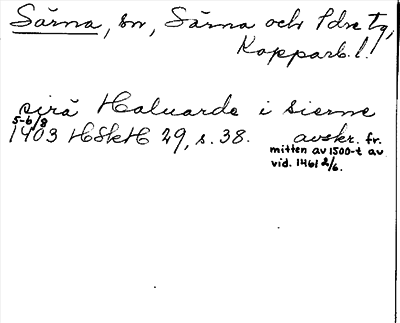 Särna, sn, Särna och Idre tg,
Kopparb. l.
sirä Haluarde i sierne
5-6/8
1403 HSkH 29, s. 38. avskr. fr.
mitten av 1500-t av
vid. 1461 2/6.